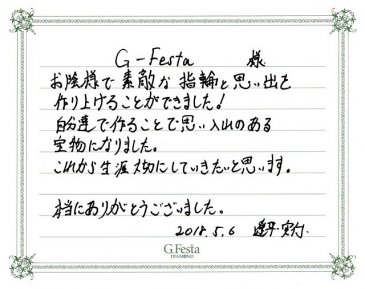 G-Festa 様
お陰様で素敵な指輪と思い出を
作り上げることができました!
自分達で作ることで思い入れのある
宝物になりました。
これから生涯大切にしていきたいと思います。
本当にありがとうございました。
2018.5.6
G.Festa
DIAMOND